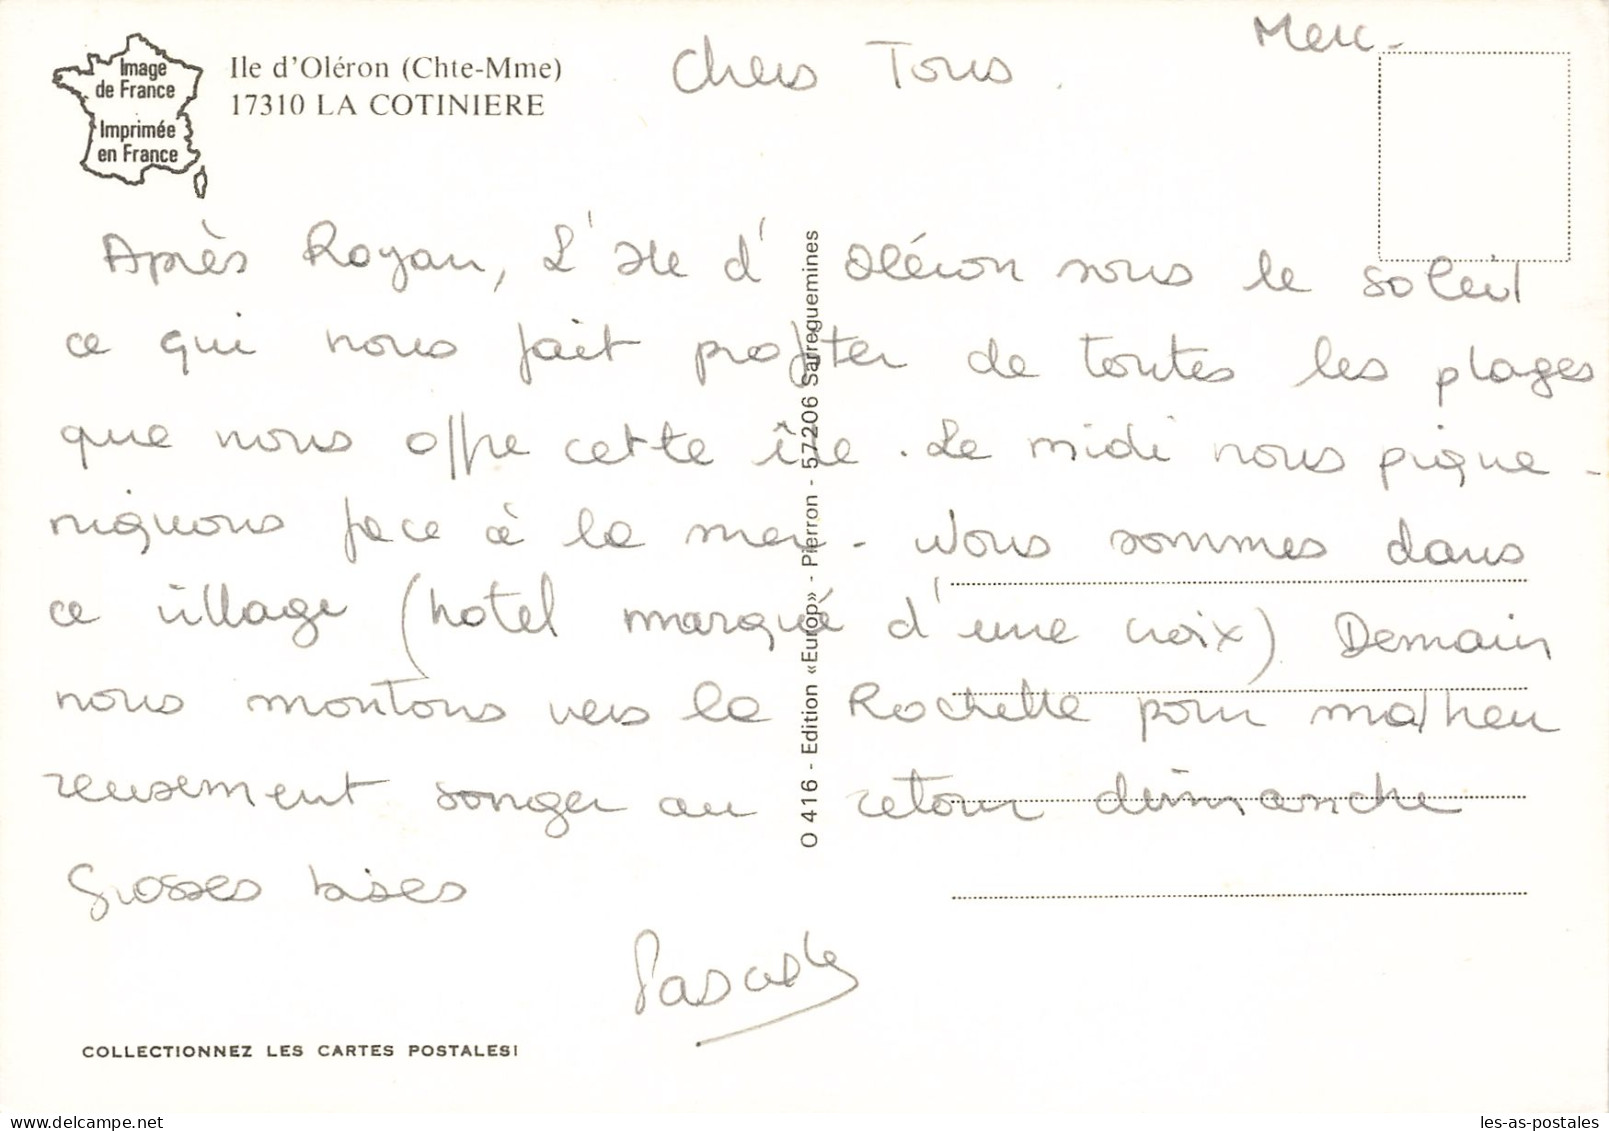 Image
de France
Imprimée
en France
Ile d'Oléron (Chte-Mme)
17310 LA COTINIERE
Merc.
Chers Tous.
Après Royan, L'Ile d'Oléron sous le soleil
ce qui nous fait profiter de toutes les plages
que nous offre cette île. Le midi nous pique-
niquons face à la mer. Nous sommes dans
ce village (hotel marqué d'une croix) Demain
nous montons vers la Rochelle pour malheu
reusement songer au retour dimanche
Grosses bises
Pascale
O 416 - Edition «Europ» - Pierron - 57206 Sarreguemines
COLLECTIONNEZ LES CARTES POSTALES!
delcampe.net
les-as-postales